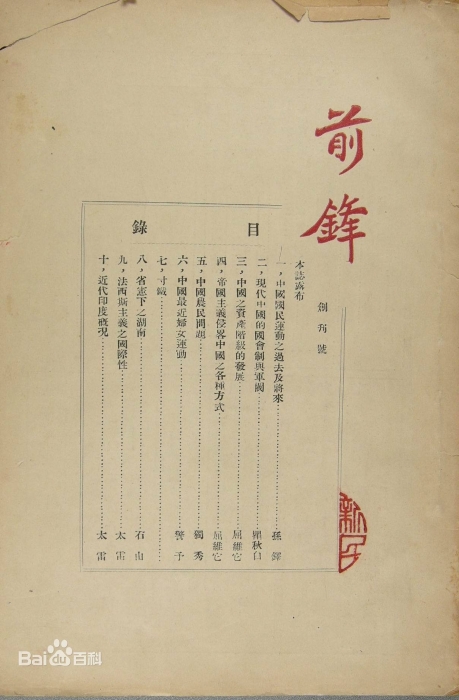 前鋒
創刊號
本誌露布
目錄
一，中國國民運動之過去及將來……孫鐸
二，現代中國的國會制與軍閥……瞿秋白
三，中國之資產階級的發展……屈維它
四，帝國主義侵畧中國之各種方式……屈維它
五，中國農民問題……獨秀
六，中國最近婦女運動……警予
七，寸鐵……
八，省憲下之湖南……石山
九，法西斯主義之國際性……太雷
十，近代印度概況……太雷
Baidu百科